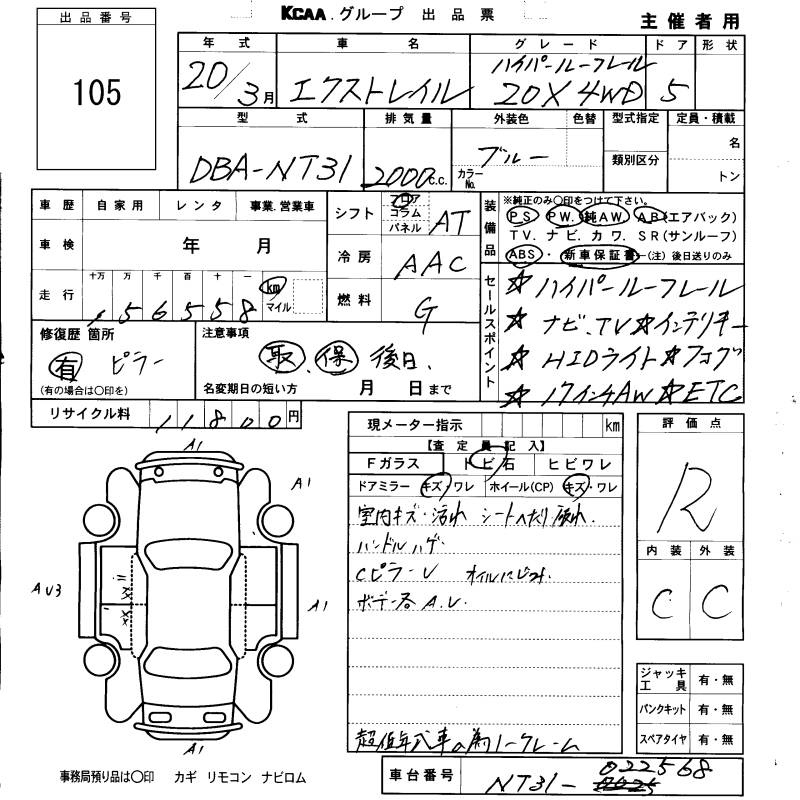 KCAA.グループ 出品票
主催者用
出品番号
105
年式 車名 グレード ドア 形状
20/3月 エクストレイル ハイパールーフレール 20X 4WD 5
型式 排気量 外装色 色替 型式指定 定員・積載
DBA-NT31 2000c.c. ブルー カラーNo. 類別区分 名
トン
車歴 自家用 レンタ 事業.営業車
車検 年 月
走行 十万 万 千 百 十 一 km マイル
156558
シフト フロア コラム パネル AT
冷房 AAC
燃料 G
装備品
※純正のみ〇印をつけて下さい。
PS PW. 純AW. AB(エアバック)
TV. ナビ. カワ. SR(サンルーフ)
ABS・ 新車保証書-(注)後日送りのみ
セールスポイント
☆ハイパールーフレール
☆ナビ、TV☆インテリキー
☆HIDライト☆フォグ
☆17インチAW☆ETC
修復歴 箇所
有 ピラー
(有の場合は〇印を)
注意事項
取.保 後日.
名変期日の短い方 月 日まで
リサイクル料 11800円
現メーター指示 km
【査定員記入】
Fガラス トビ石 ヒビワレ
ドアミラー キズ・ワレ ホイール(CP) キズ・ワレ
室内キズ・汚れ シートへたり
ハンドルハゲ.
CピラーU オイルにじみ.
ボデー各A.U.
超低年式車の為ノークレーム
評価点
R
内装 外装
C C
A1
A1
AU3
A1
A1
XX
X
ジャッキ工具 有・無
パンクキット 有・無
スペアタイヤ 有・無
事務局預り品は〇印 カギ リモコン ナビロム
車台番号 NT31-022568